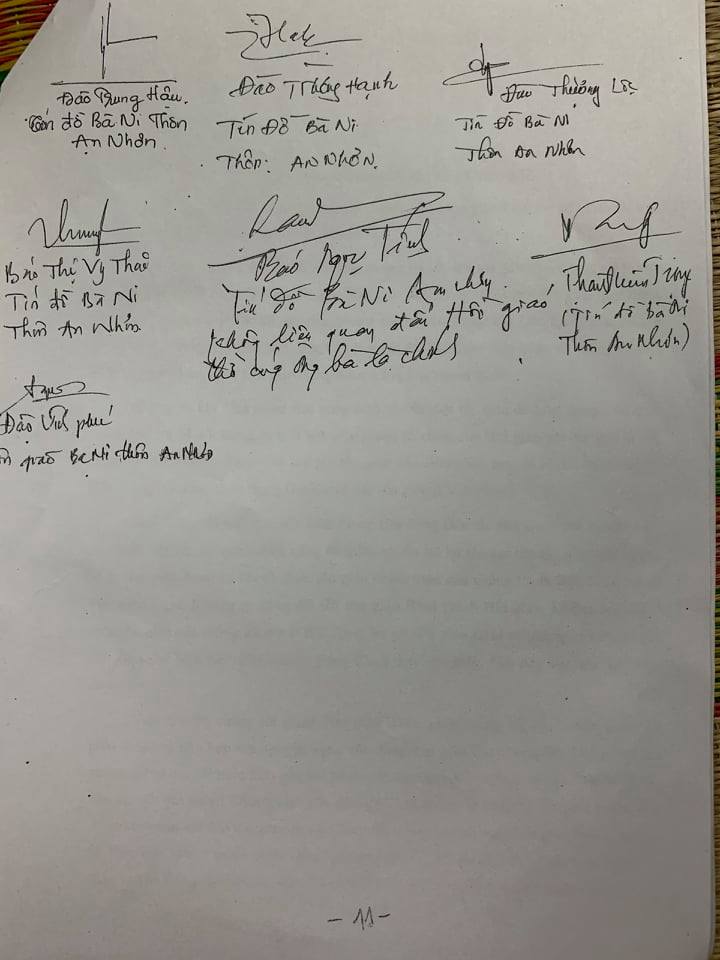 Đào Trung Hậu.
Tín đồ Bà Ni Thôn
An Nhơn.
Đào Trọng Hạnh
Tín Đồ Bà Ni
Thôn: AN NHƠN.
Đào Thưởng
Tín Đồ Bà Ni
Thôn An Nhơn
Báo Thị Vy Thảo
Tín đồ Bà Ni
Thôn An Nhơn
Báo Ngọc Tính
Tín đồ Bà Ni An Nhơn.
không liên quan đến Hồi giáo,
thờ cúng ông bà là chính
Tín đồ Bà Ni
Thôn An Nhơn)
Đào Vĩnh phú
Bà Ni thôn An Nhơn
- 11 -